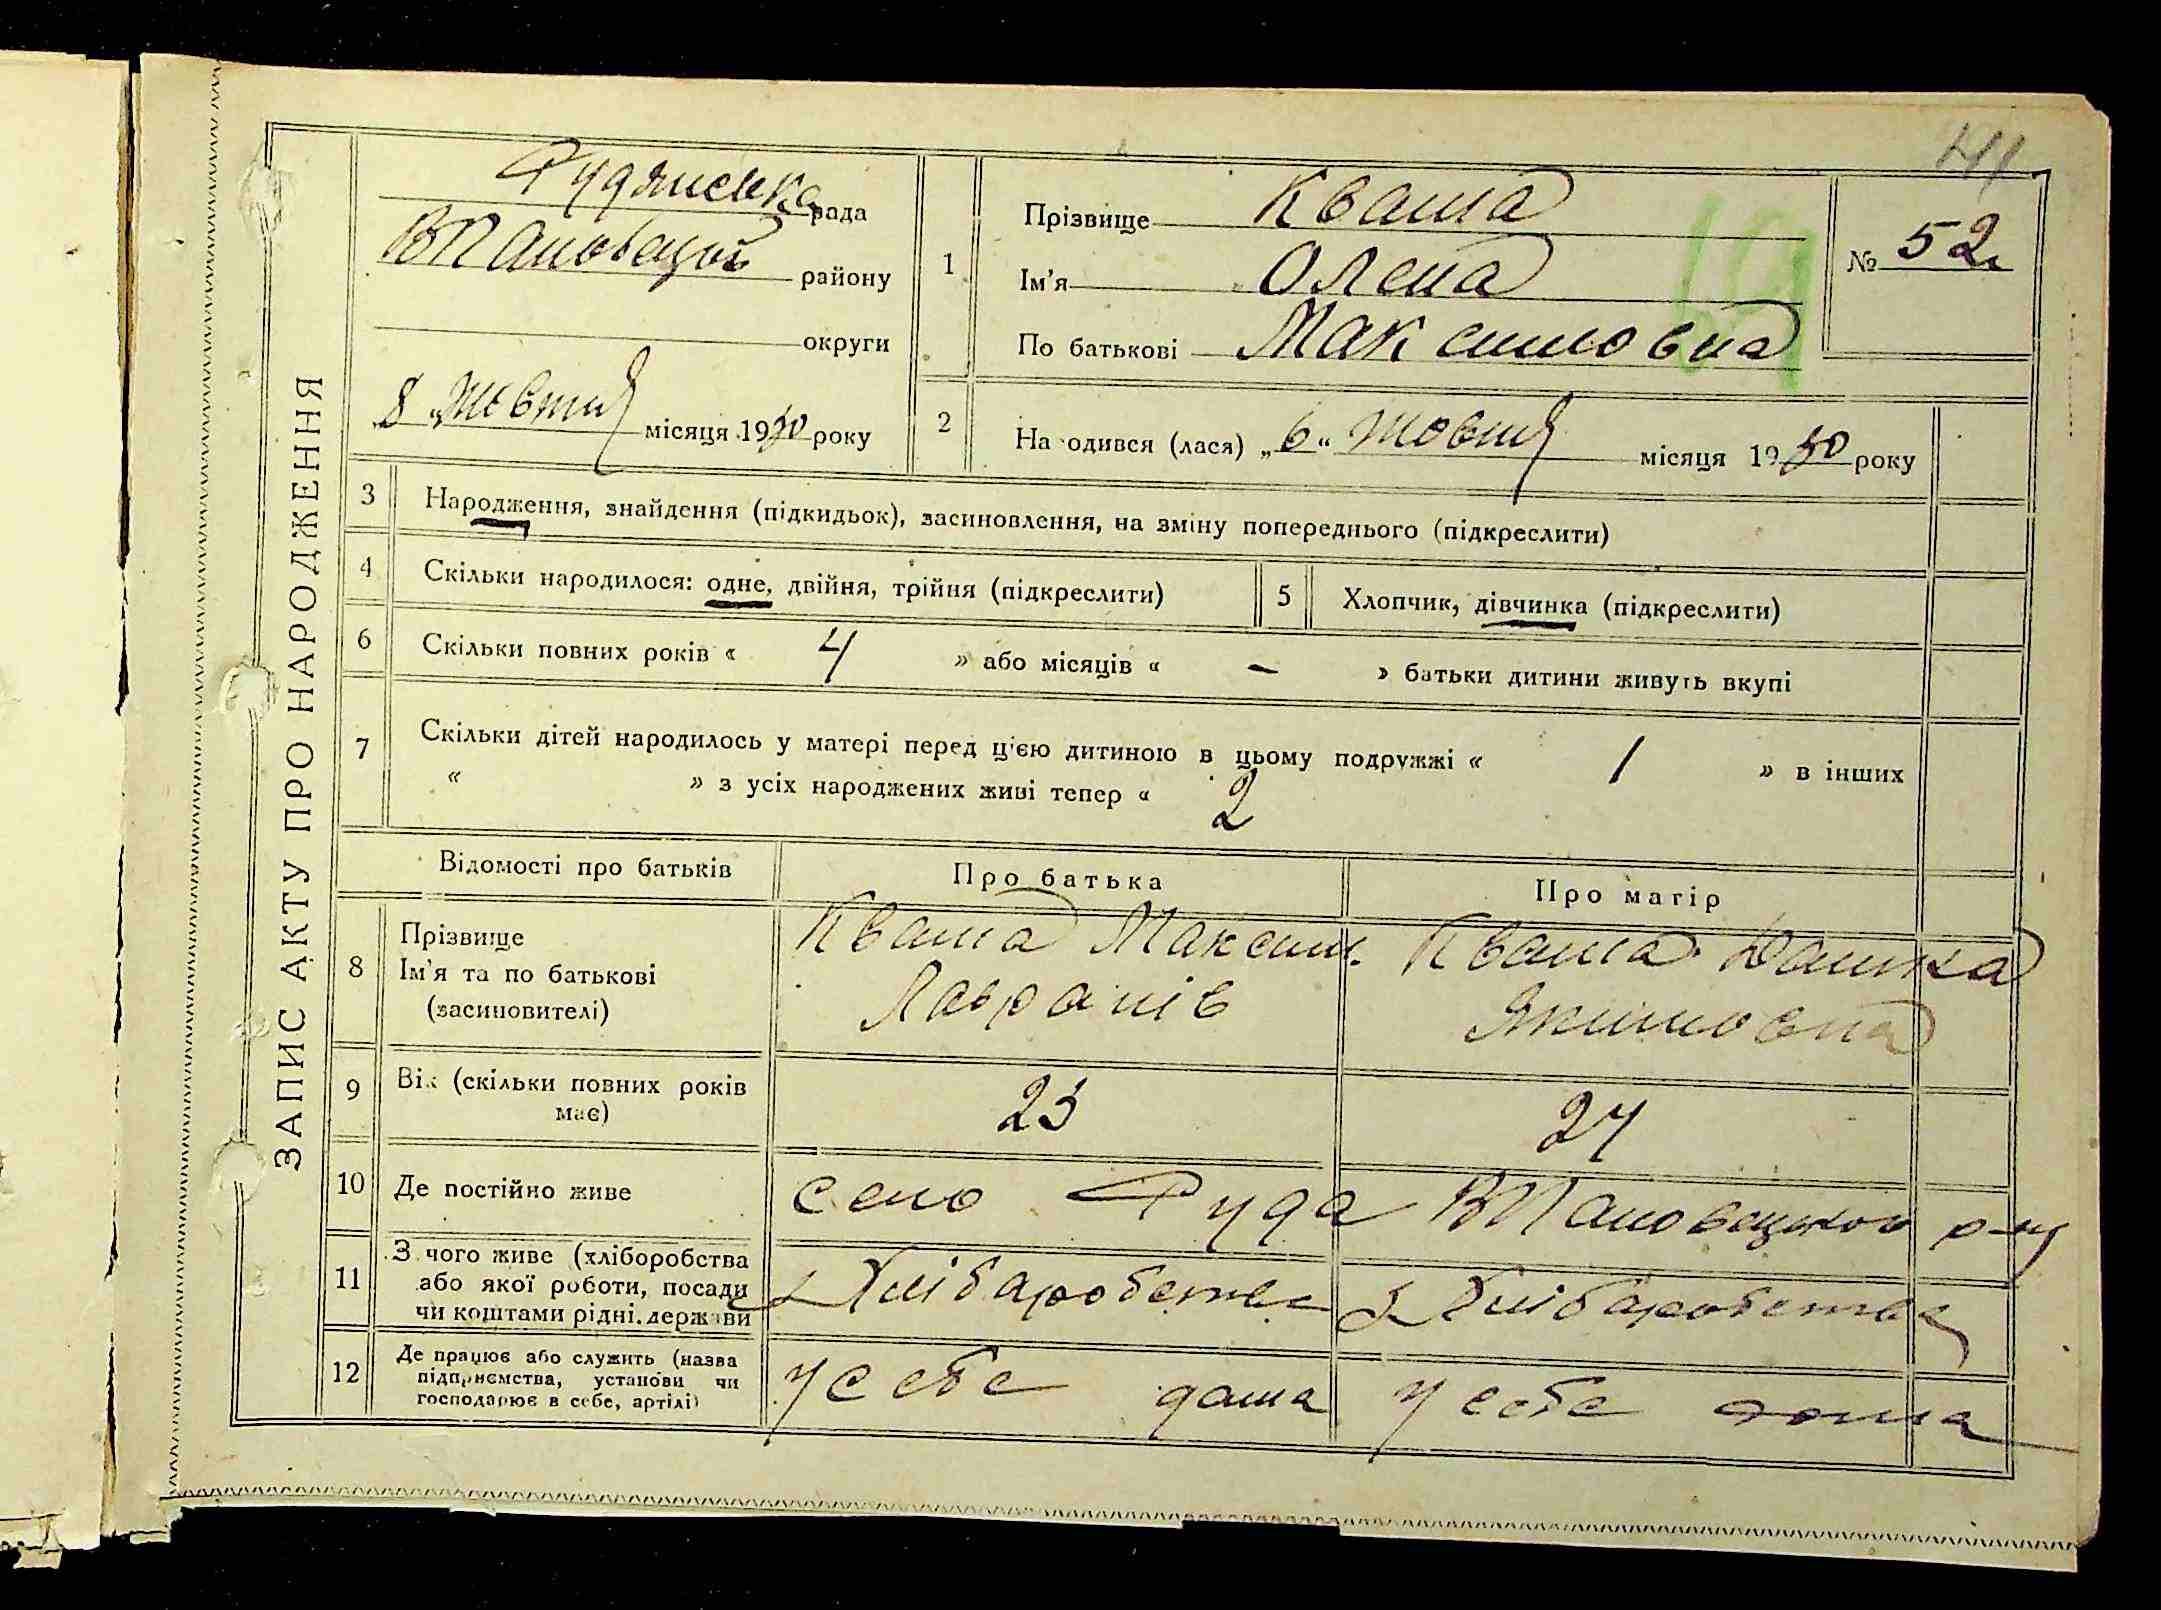 ЗАПИС АКТУ ПРО НАРОДЖЕННЯ
Рудянська рада
району
округи
8 „Жовтня місяця 1930 року
1
Прізвище Кваша
Ім'я Олена
По батькові Максимовна
№ 52
2 На одився (лася) „6“ Жовтня місяця 1930 року
3 Народження, знайдення (підкидьок), засиновлення, на зміну попереднього (підкреслити)
4 Скільки народилося: одне, двійня, трійня (підкреслити)
5 Хлопчик, дівчинка (підкреслити)
6 Скільки повних років « 4 » або місяців « – » батьки дитини живуть вкупі
7 Скільки дітей народилось у матері перед цією дитиною в цьому подружжі « 1 » в інших
« » з усіх народжених живі тепер « 2
Відомості про батьків
Про батька
Про матір
8 Прізвище
Ім'я та по батькові
(засиновителі)
Кваша Максим.
Лавранів
Кваша Дашка
Якимовна
9 Вік (скільки повних років
має)
23
24
10 Де постійно живе
село Руда р-ну
11 З чого живе (хліборобства
або якої роботи, посади
чи коштами рідні. держави
з Хлібаробства
з Хлібаробства
12 Де працює або служить (назва
підприємства, установи чи
господарює в себе, артілі)
У себе дома
У себе дома